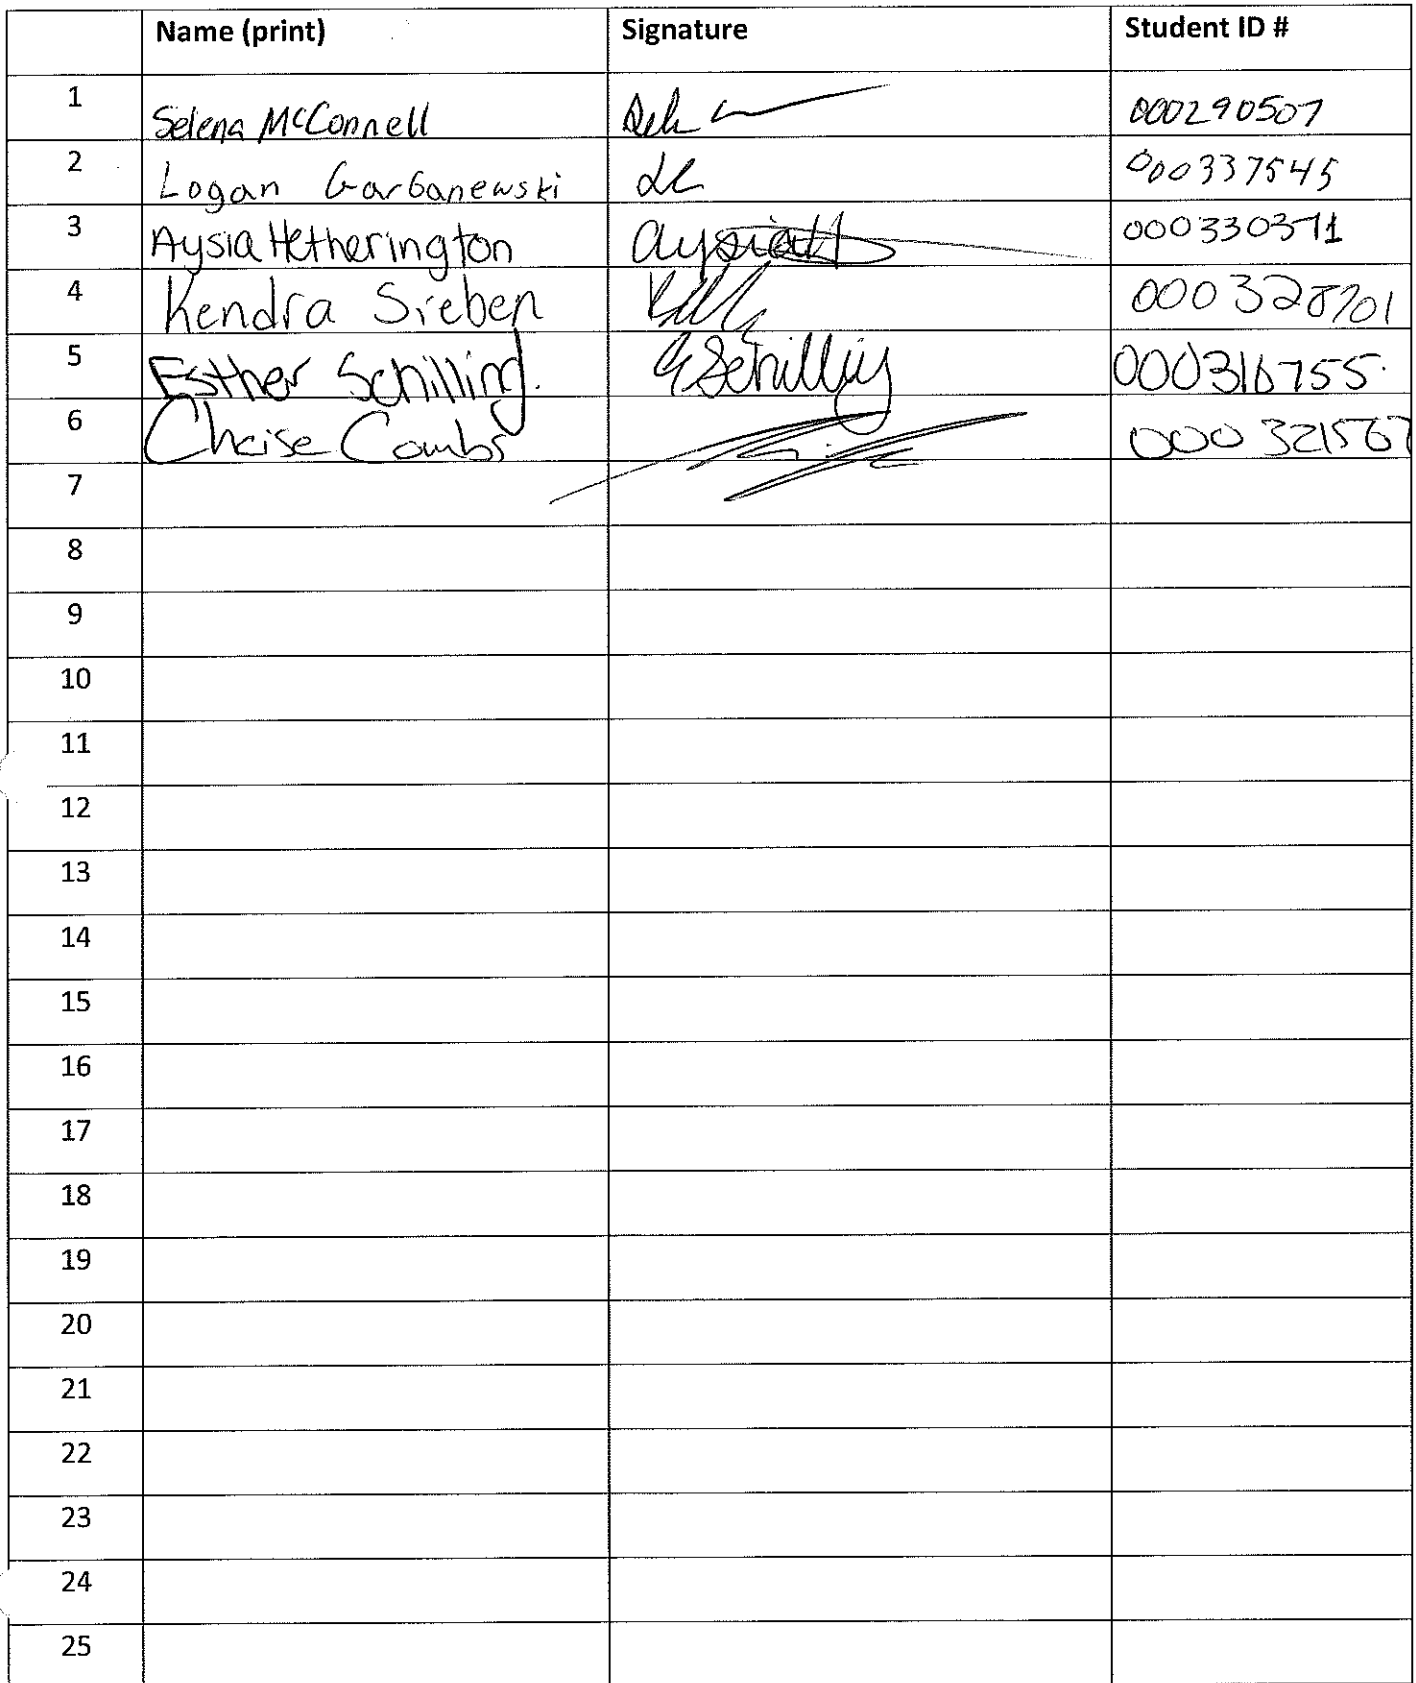 Name (print) Signature Student ID #
1 Selena McConnell 000290507
2 Logan Garbanewski 000337545
3 Aysia Hetherington AysiaH 000330371
4 Kendra Sieben 000328701
5 Esther Schilling. E Schilling 000316755.
6 Chaise Combs 000321567
7
8
9
10
11
12
13
14
15
16
17
18
19
20
21
22
23
24
25